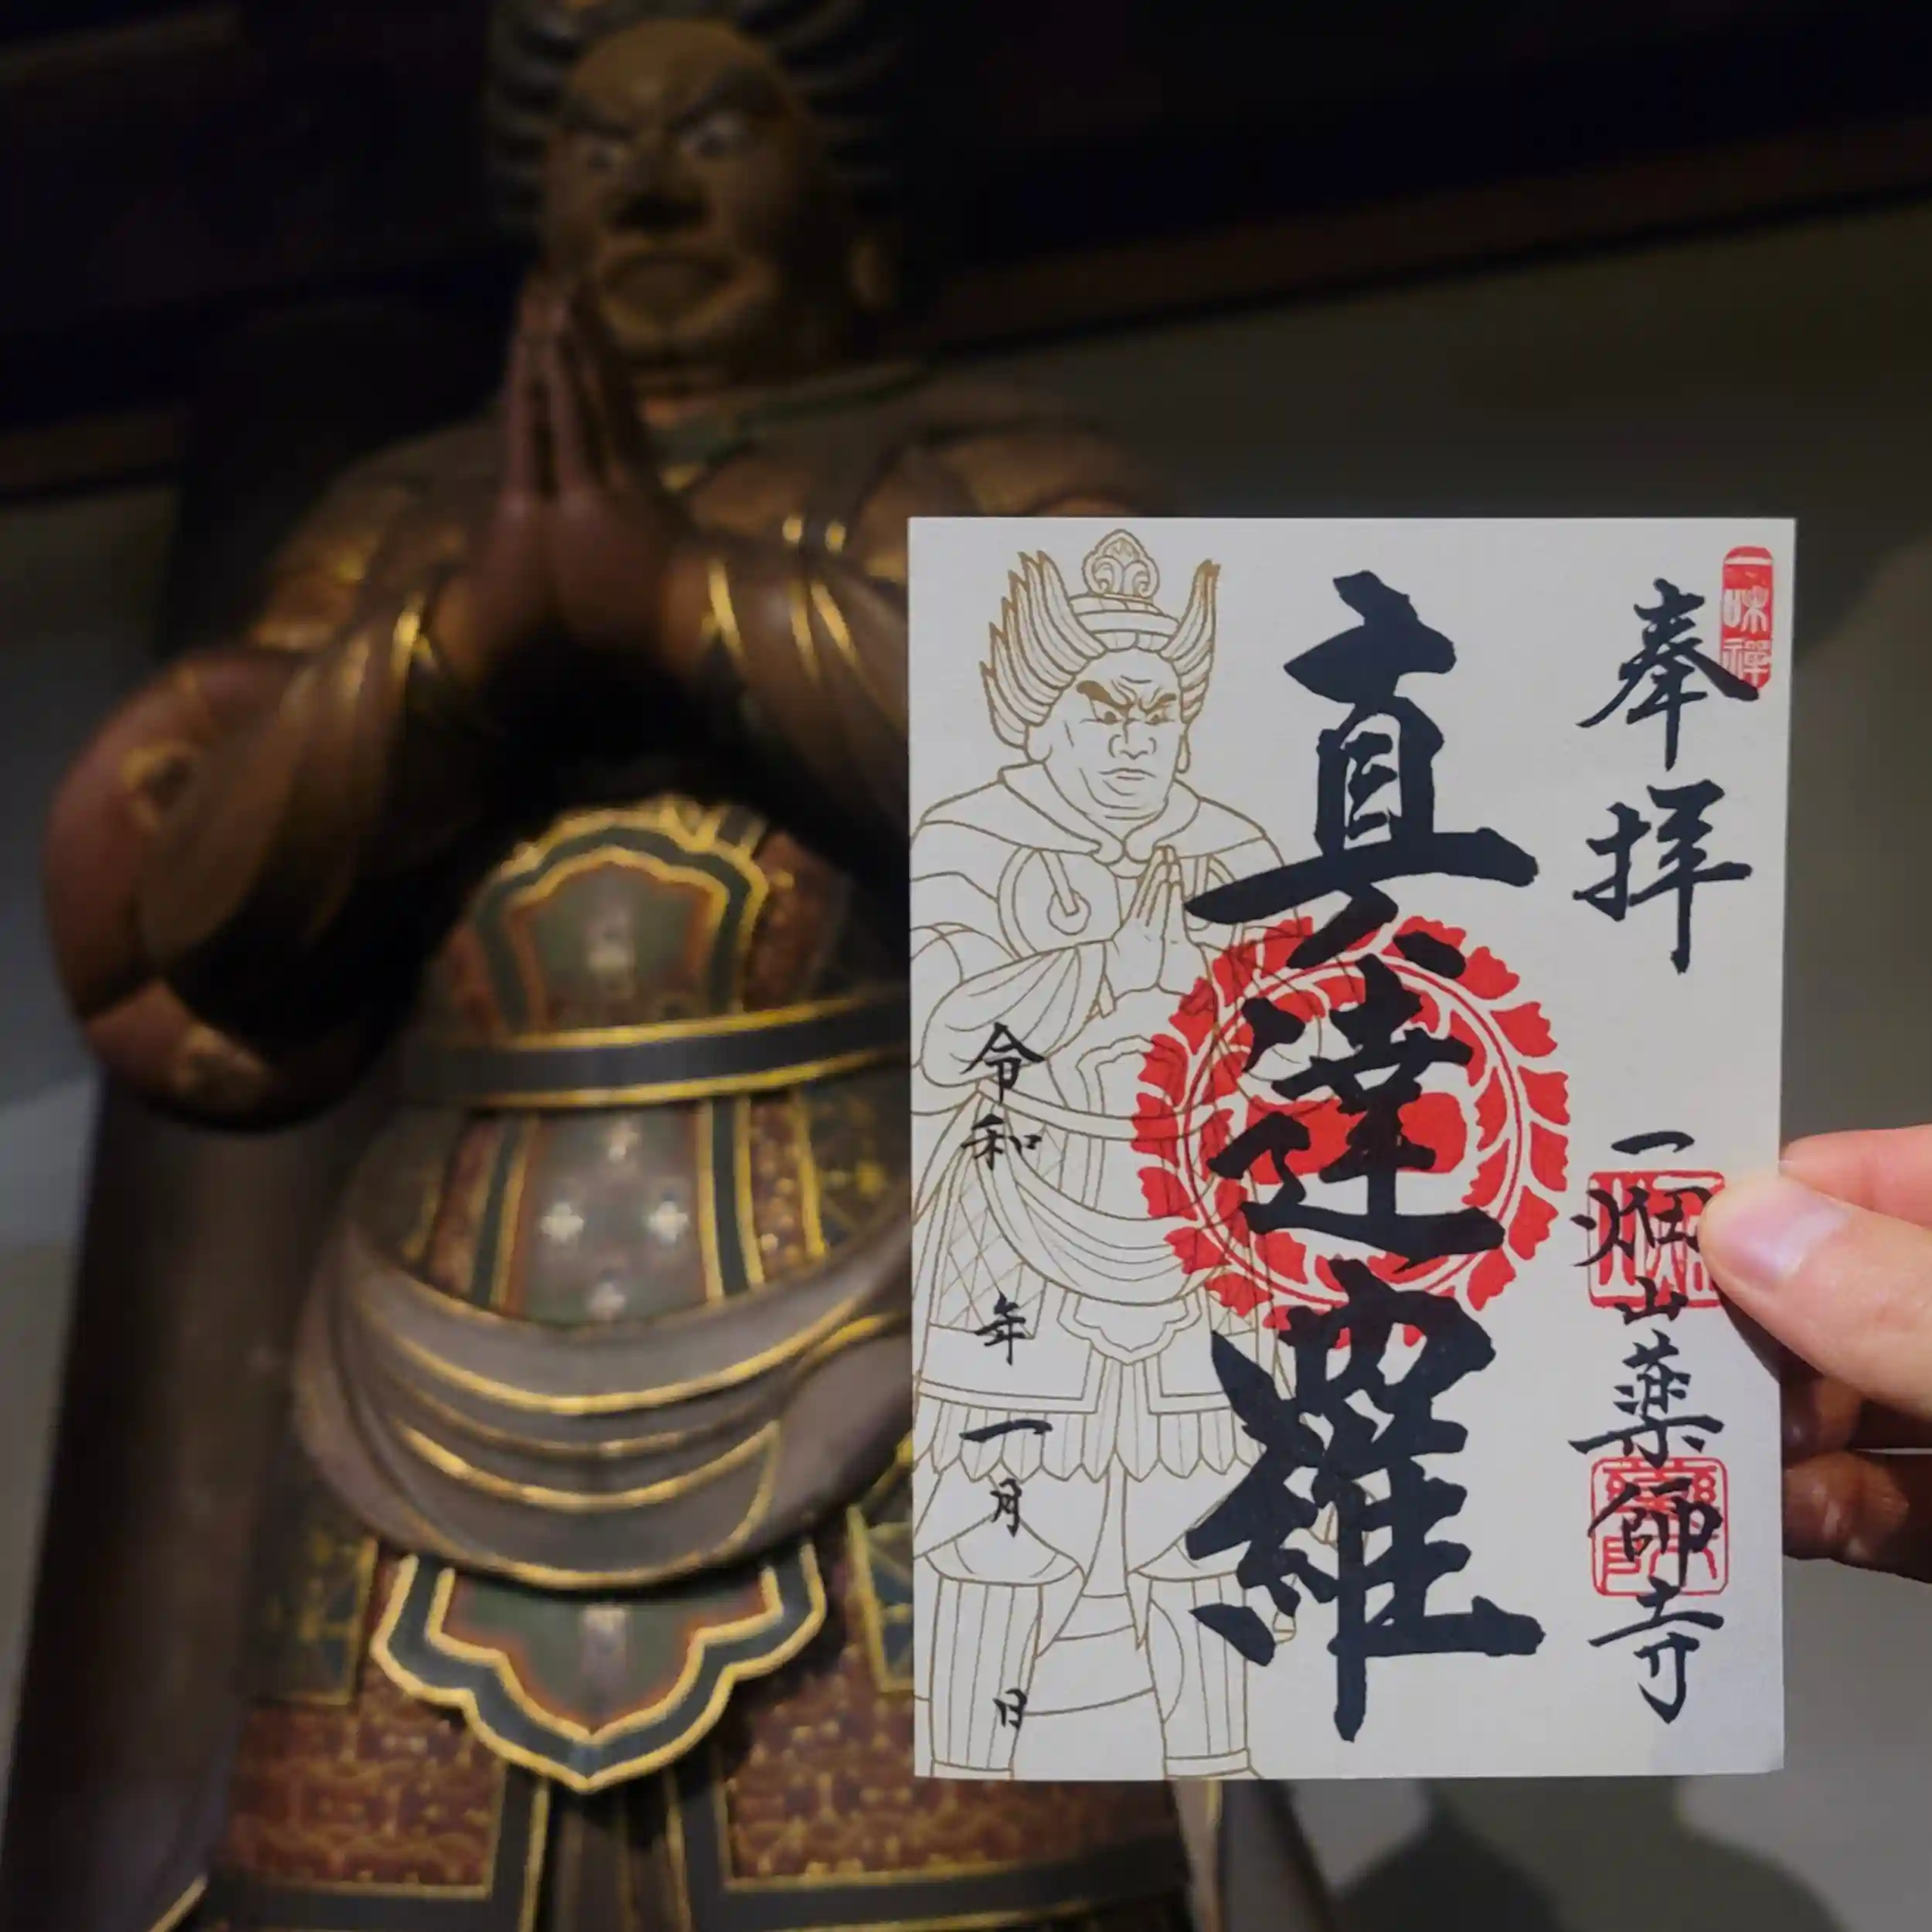 奉拝
一畑山薬師寺
真達羅
令和 年一月 日
一味禅